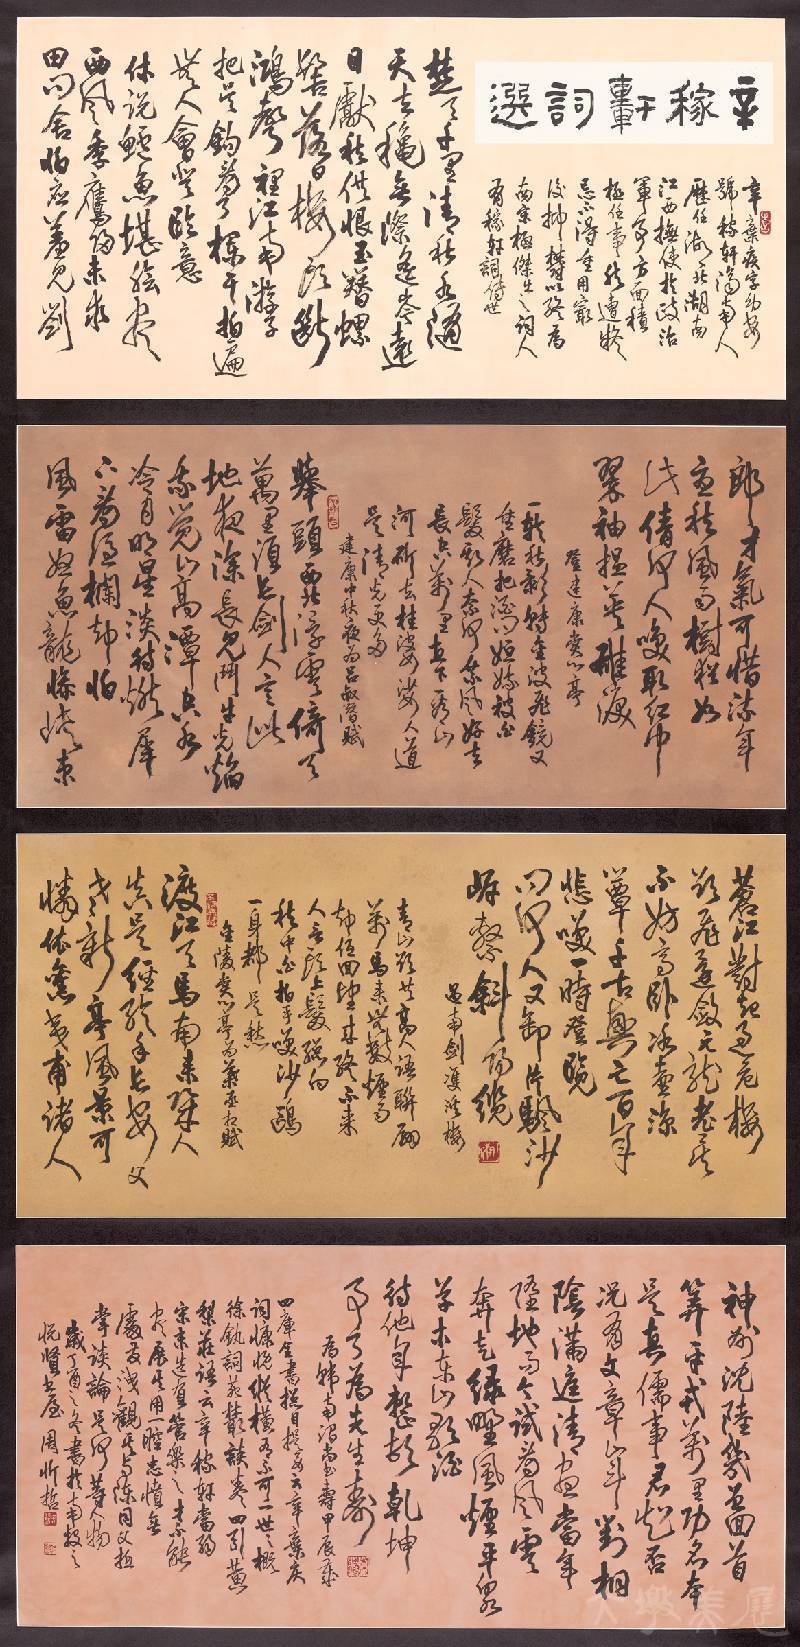 辛稼軒詞選
辛棄疾字幼安
號稼軒濟南人
歷任湖北湖南
江西撫使於政治
軍事方面積
極任事然遭疑
忌不得重用最
後抑鬱以終為
南宋極傑出之詞人
有稼軒詞傳世
楚天千里清秋水隨
天去秋無際遙岑遠
目獻愁供恨玉簪螺
髻落日樓頭斷
鴻聲裡江南游子
把吳鈎看了欄干拍遍
無人會登臨意
休說鱸魚堪膾盡
西風季鷹歸未求
田問舍怕應羞見劉
郎才氣可惜流年
憂愁風雨樹猶如
此倩何人喚取紅巾
翠袖搵英雄淚
登建康賞心亭
一輪秋影轉金波飛鏡又
重磨把酒問姮娥被白
髮欺人奈何乘風好去
長空萬里直下看山
河斫去桂婆娑人道
是清光更多
建康中秋夜為呂叔潛賦
舉頭西北浮雲倚天
萬里須長劍人言此
地夜深長見鬥牛光焰
我覺山高潭空水
冷月明星淡待燃犀
下看憑欄却怕
風雷怒魚龍慘峽束
蒼江對起過危樓
欲飛還斂元龍老矣
不妨高臥冰壺涼
簟千古興亡百年
悲笑一時登覽
問何人又卸片帆沙
岸繫斜陽纜
過南劍雙溪樓
青山欲共高人語聯翩
萬馬來無數煙雨
却低回望來終不來
人言頭上髮總向
愁中白拍手笑沙鷗
一身都是愁
金陵賞心亭為葉丞相賦
渡江天馬南來幾人
真是經綸手長安父
老新亭風景可
憐依舊夷甫諸人
神州沈陸幾曾回首
算平戎萬里功名本
是真儒事君知否
況有文章山斗對桐
陰滿庭清晝當年
墮地而今試看風雲
奔走綠野風煙平泉
草木東山歌酒
待他年整頓乾坤
事了為先生壽
為韓南澗尚書壽甲辰歲
四庫全書總目提要云辛棄疾
詞慷慨縱橫有不可一世之概
徐釚詞苑叢談卷四引黃
梨莊語云辛稼軒當弱
宋末造負管樂之才不能
盡展其用一腔忠憤無
處發洩觀其與陳同父抵
掌談論是何等人物
歲丁酉之冬書於南投之
悅賢書屋周忻哲
大墩美展